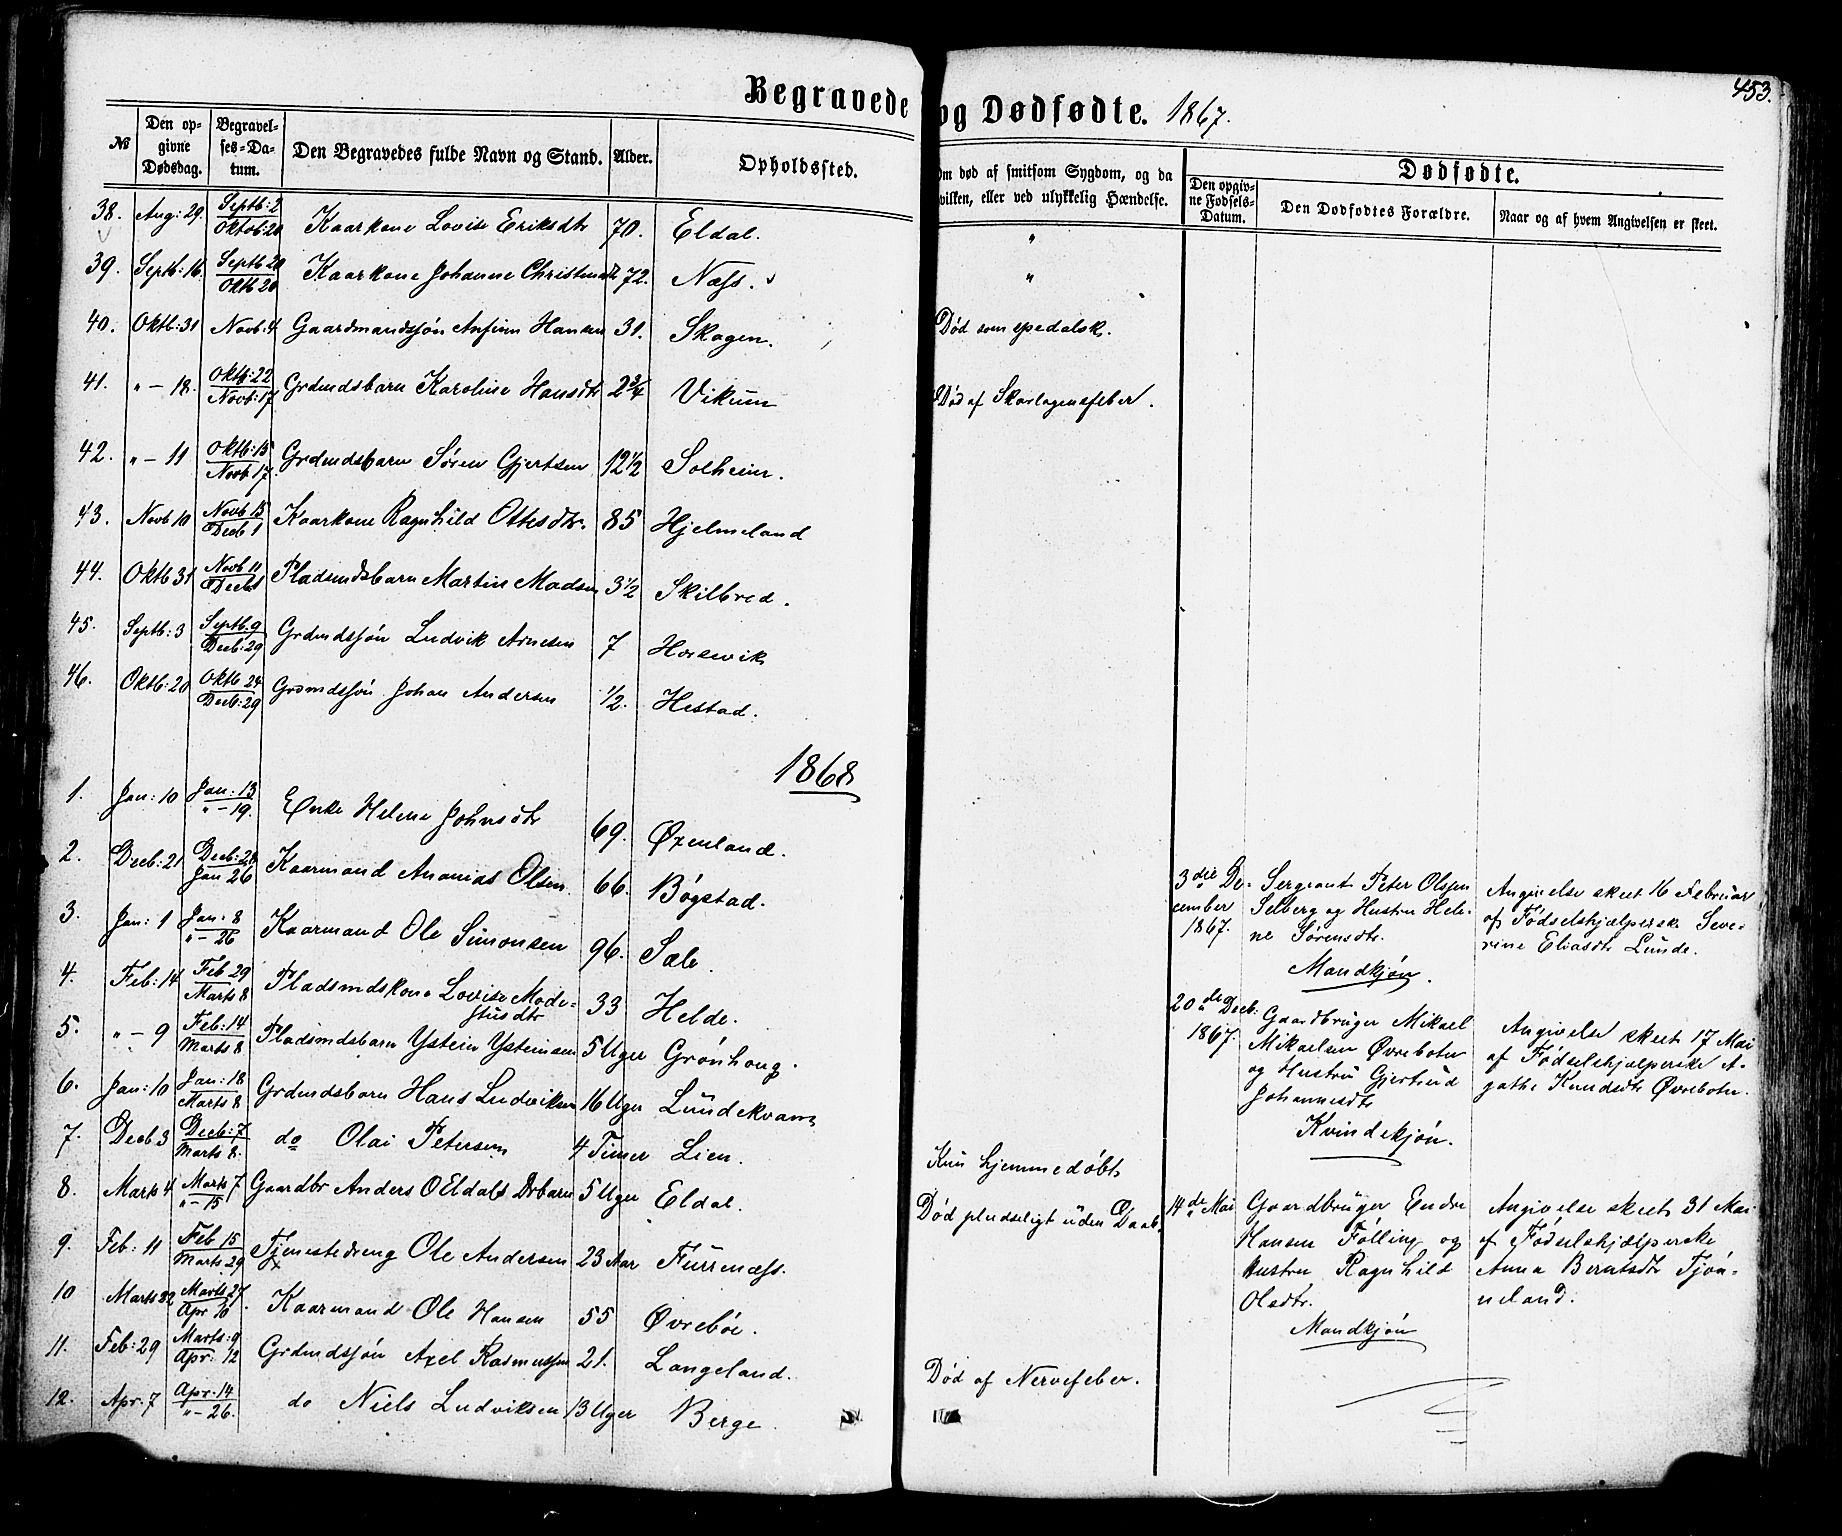 453.
Begravede og Dødfødte. 1867.
№ Den op-givne Dødsdag. Begravel-ses-Da-tum. Den Begravedes fulde Navn og Stand. Alder. Opholdssted. Om død af smitsom Sygdom, og da hvilken, eller ved ulykkelig Hændelse. Dødfødte.
Den opgiv-ne Fødsels-Datum. Den Dødfødtes Forældre. Naar og af hvem Angivelsen er skeet.
38. Aug: 29. Septb: 2 Oktob: 20 Kaarkone Lovise Eriksdtr 70. Eldal. "
39. Septb: 16. Septb 20 Oktb 20 Kaarkone Johanne 72. Næss. "
40. Oktb: 31 Novb: 4 Gaardmandssøn Anfinn Hansen 31. Skogen. Død som spedalsk.
41. " - 18. Oktb: 22 Novb: 17 Grdmdsbarn Karoline Hansdtr 2 3/4 Vikum Død af Skarlagensfeber.
42. " - 11 Oktb: 15 Novb 17. Grdmdsbarn Søren Gjertsen 12 1/2 Solheim.
43. Novb 10 Novb 15 Decb 1 Kaarkone Ragnhild Ottesdtr. 85 Hjelmeland
44. Oktb 31 Novb 11 Decb 1 Pladsmdsbarn Martin Madsen 3 1/2 Skilbred.
45. Septb: 3 Septb. 9 Decb: 29 Grdmdssøn Ludvik Arnesen 7 Horsevik
46. Oktb: 20 Oktb 24 Decb: 29 Grdmdssøn Johan Andersen 1/2. Hestad.
1868
1. Jan: 10 Jan: 13 " - 19. Enke Helene Johnsdtr 69. Øxenland.
2. Decb: 21 Decb: 28 Jan 26 Kaarmand Ananias Olsen 66. Bøgstad.
3. Jan: 1 Jan: 8 " - 26 Kaarmand Ole Simonsen 96. Sæle.
4. Feb: 14 Feb 29 Marts 8 Pladsmdskone Lovise Mode=
stusdtr 33 Helde.
5. " - 9 Feb: 14 Marts 8 Pladsmdsbarn Ystein Ysteinsen 5 Uger Grønhoug.
6. Jan: 10 Jan: 18 Marts 8 Grdmdsbarn Hans Ludviksen 16 Uger Lundekvam
7. Decb 3 Decb: 7 Marts 8. do Olai Petersen 4 Timer Lien. Kun hjemmedøbt
8. Marts 4 Marts 7 " - 15 Gaardbr Anders O Eldals Drbarn 5 Uger Eldal. Død pludseligt uden Daab.
9. Feb: 11 Feb 15 Marts 29 Tjenestedreng Ole Andersen 23 Aar Furrenæss.
10 Marts 22 Marts 27. Apr 10 Kaarmand Ole Hansen 55 Øvrebøe.
11. Feb: 29 Marts: 9 Apr: 12 Grdmdssøn Axel Rasmussen 21. Langeland. Død af Nervefeber.
12. Apr. 7 Apr. 14 " - 26. do Niels Ludviksen 13 Uger Berge.
3die De-
cember
1867.
Sergeant Peter Olssen
Selberg og Hustru Hele-
ne Sørensdtr.
Mandkjøn.
Angivelse skeet 16 Februar
af Fødselshjælperske Seve-
rine Eliasdtr Lunde.
20de Decb:
1867.
Gaardbruger Mikael
Mikaelsen Øvrebotn
og Hustru Gjertrud
Johannesdtr
Kvindekjøn.
Angivelse skeet 17 Mai
af Fødselshjælperske A-
gathe Knudsdtr Øvrebotn.
14de Mai
Gaardbruger Endre
Hansen Følling og
Hustru Ragnhild
Olsdtr.
Mandkjøn
Angivelse skeet 31 Mai
af Fødselshjælperske
Anna Berntsdtr Tjøn-
neland.